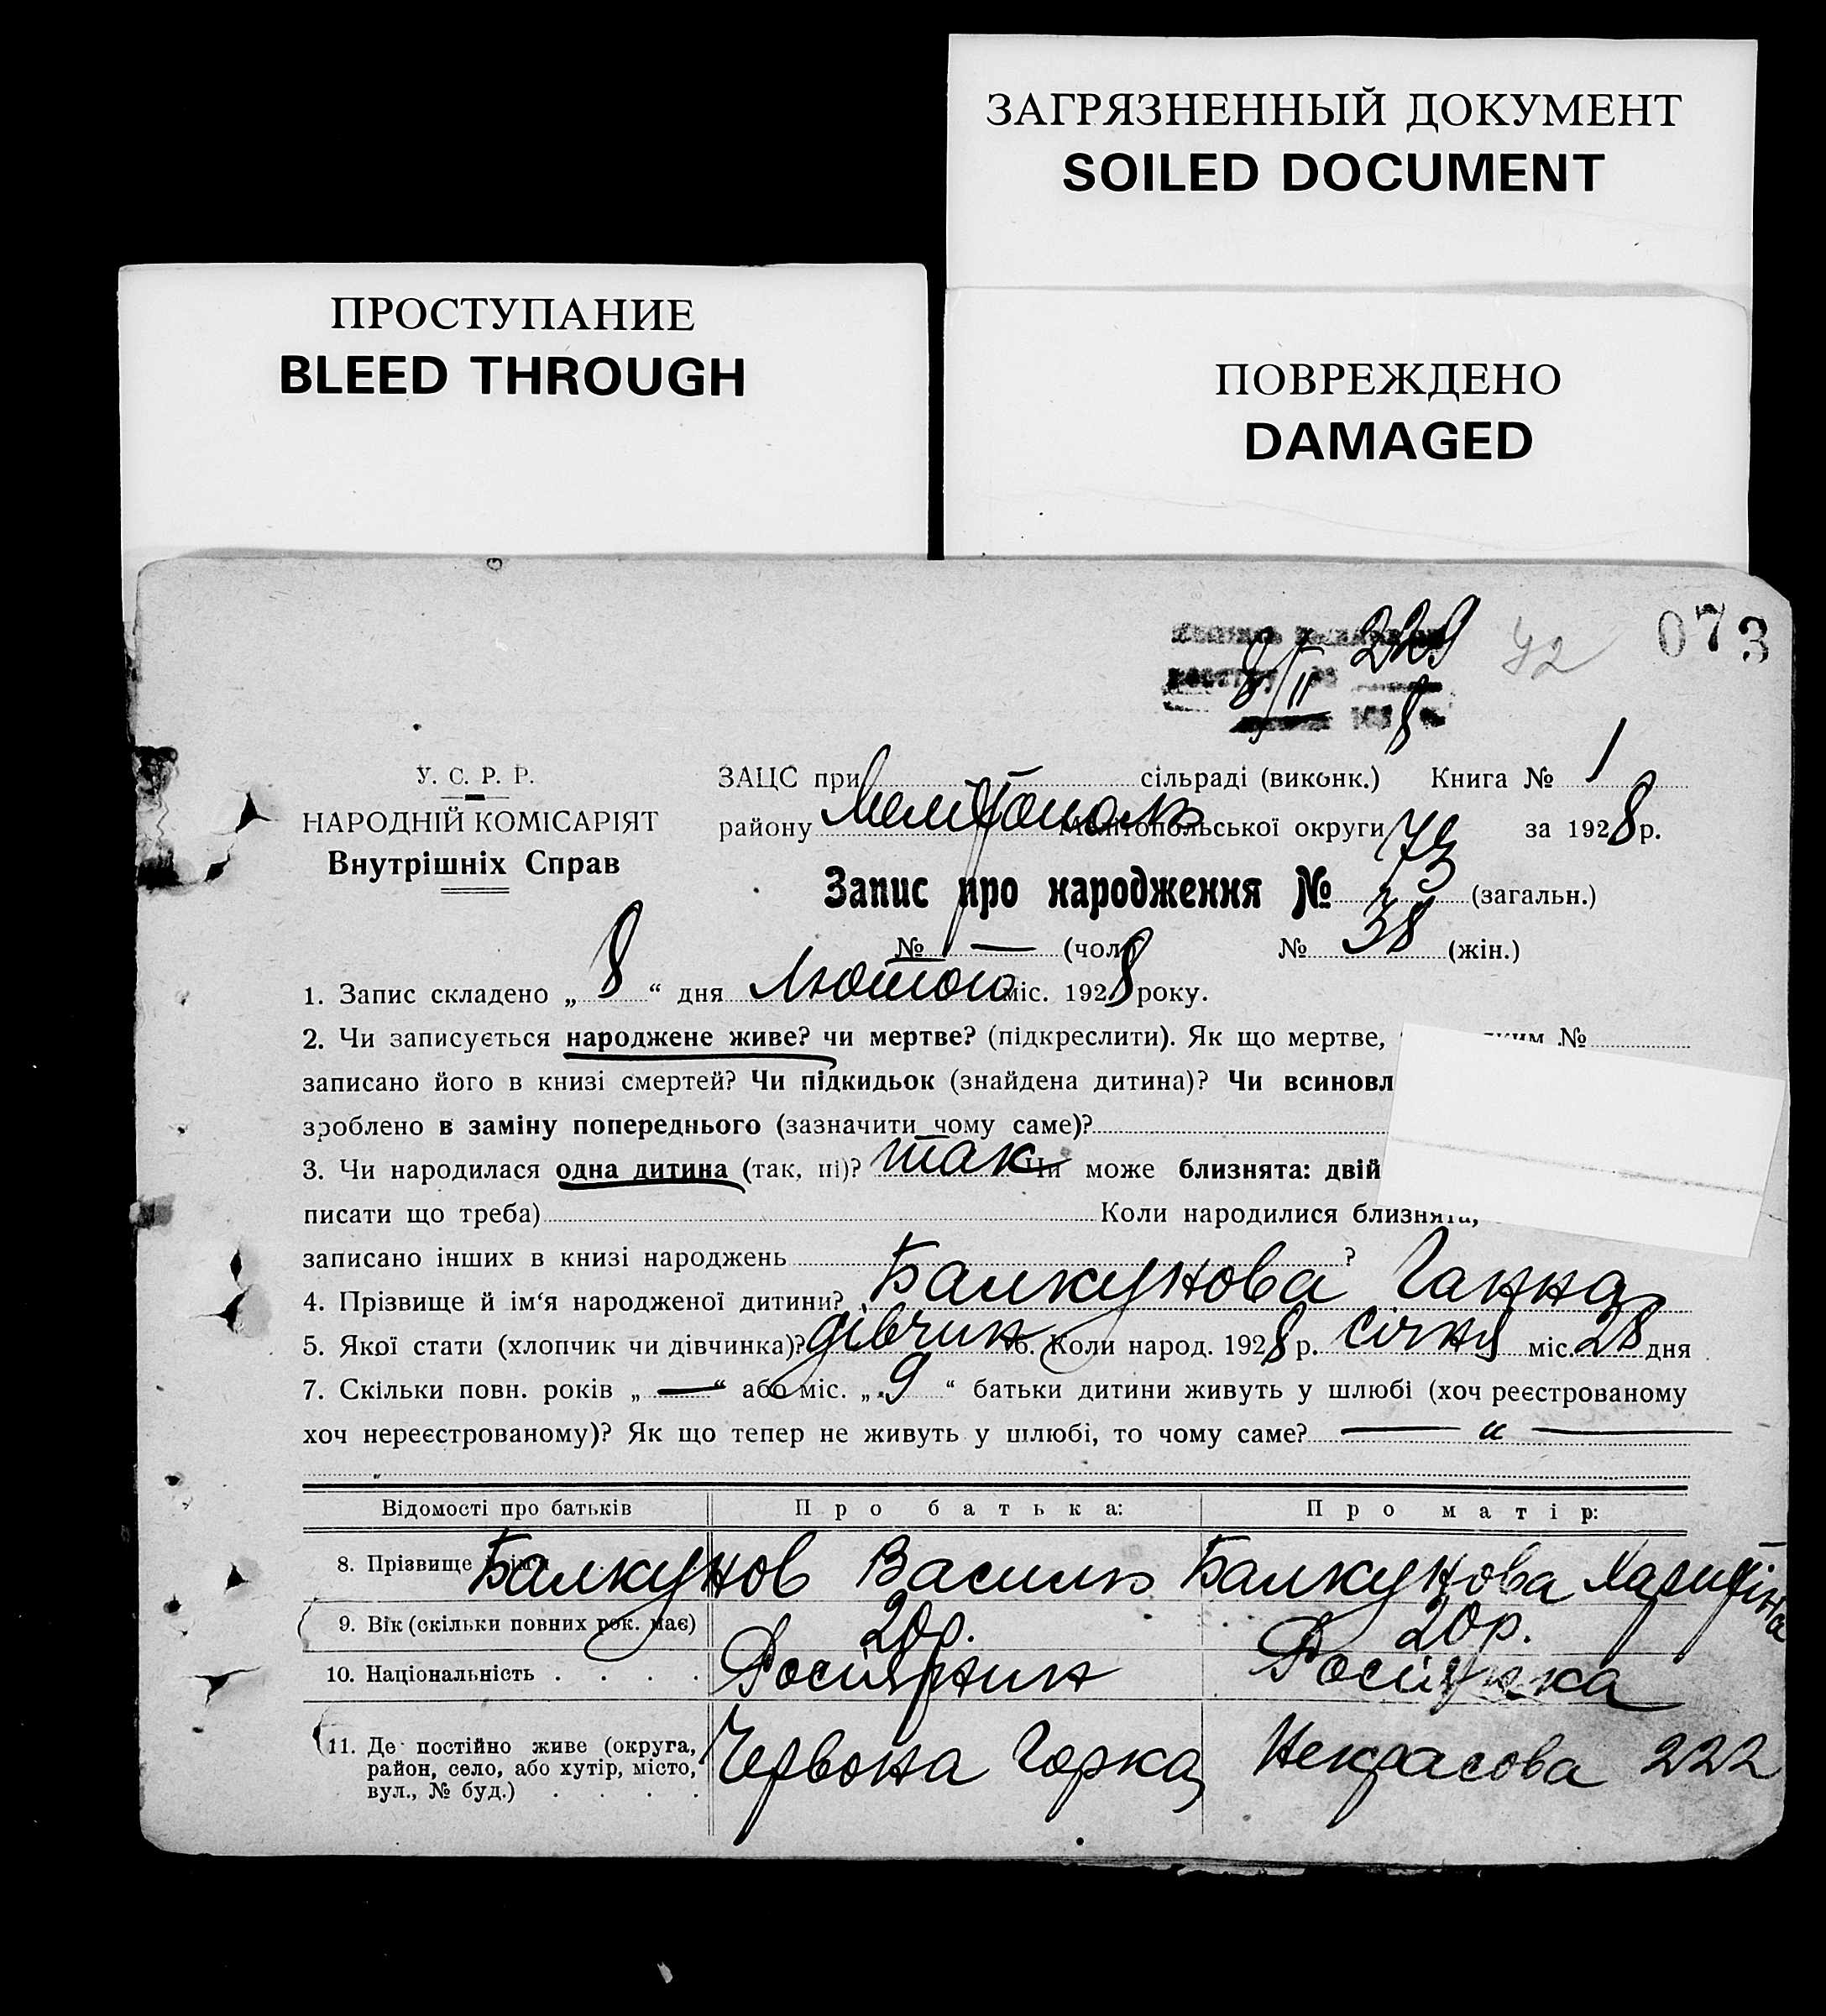 ЗАГРЯЗНЕННЫЙ ДОКУМЕНТ
SOILED DOCUMENT
ПРОСТУПАНИЕ
BLEED THROUGH
ПОВРЕЖДЕНО
DAMAGED
229 42 073
8/II 8
У. С. Р. Р.
НАРОДНІЙ КОМІСАРІЯТ
Внутрішніх Справ
ЗАЦС при сільраді (виконк.) Книга № 1
району Мелітополь Мелітопольської округи за 1928 р.
Запис про народження № 73 (загальн.)
№ — (чол.) № 38 (жін.)
1. Запис складено „ 8 “ дня Лютого міс. 1928 року.
2. Чи записується народжене живе? чи мертве? (підкреслити). Як що мертве, №
записано його в книзі смертей? Чи підкидьок (знайдена дитина)? Чи всиновл
зроблено в заміну попереднього (зазначити чому саме)?
3. Чи народилася одна дитина (так, ні)? так Чи може близнята: двій
писати що треба) Коли народилися близнята,
записано інших в книзі народжень ?
4. Прізвище й ім‘я народженої дитини? Балкунова Ганна
5. Якої стати (хлопчик чи дівчинка)? дівчин 6. Коли народ. 1928 р. січня міс. 28 дня
7. Скільки повн. років „ — “ або міс. „ 9 “ батьки дитини живуть у шлюбі (хоч реєстрованому
хоч нереєстрованому)? Як що тепер не живуть у шлюбі, то чому саме? — „ —
Відомості про батьків Про батька: Про матір:
8. Прізвище Балкунов Василь Балкунова Харитіна
9. Вік (скільки повних рок. має) 20р. 20р.
10. Національність . . . . Росіянин Росіянка
11. Де постійно живе (округа, район, село, або хутір, місто, вул., № буд.) . . . . Червона Горка Некрасова 222